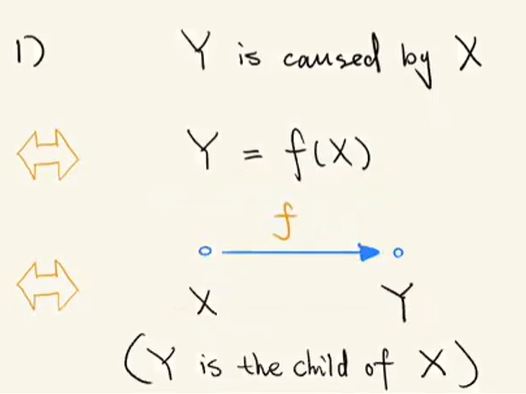 1) Y is caused by X
⇔ Y = f(X)
f
⇔
X Y
(Y is the child of X)